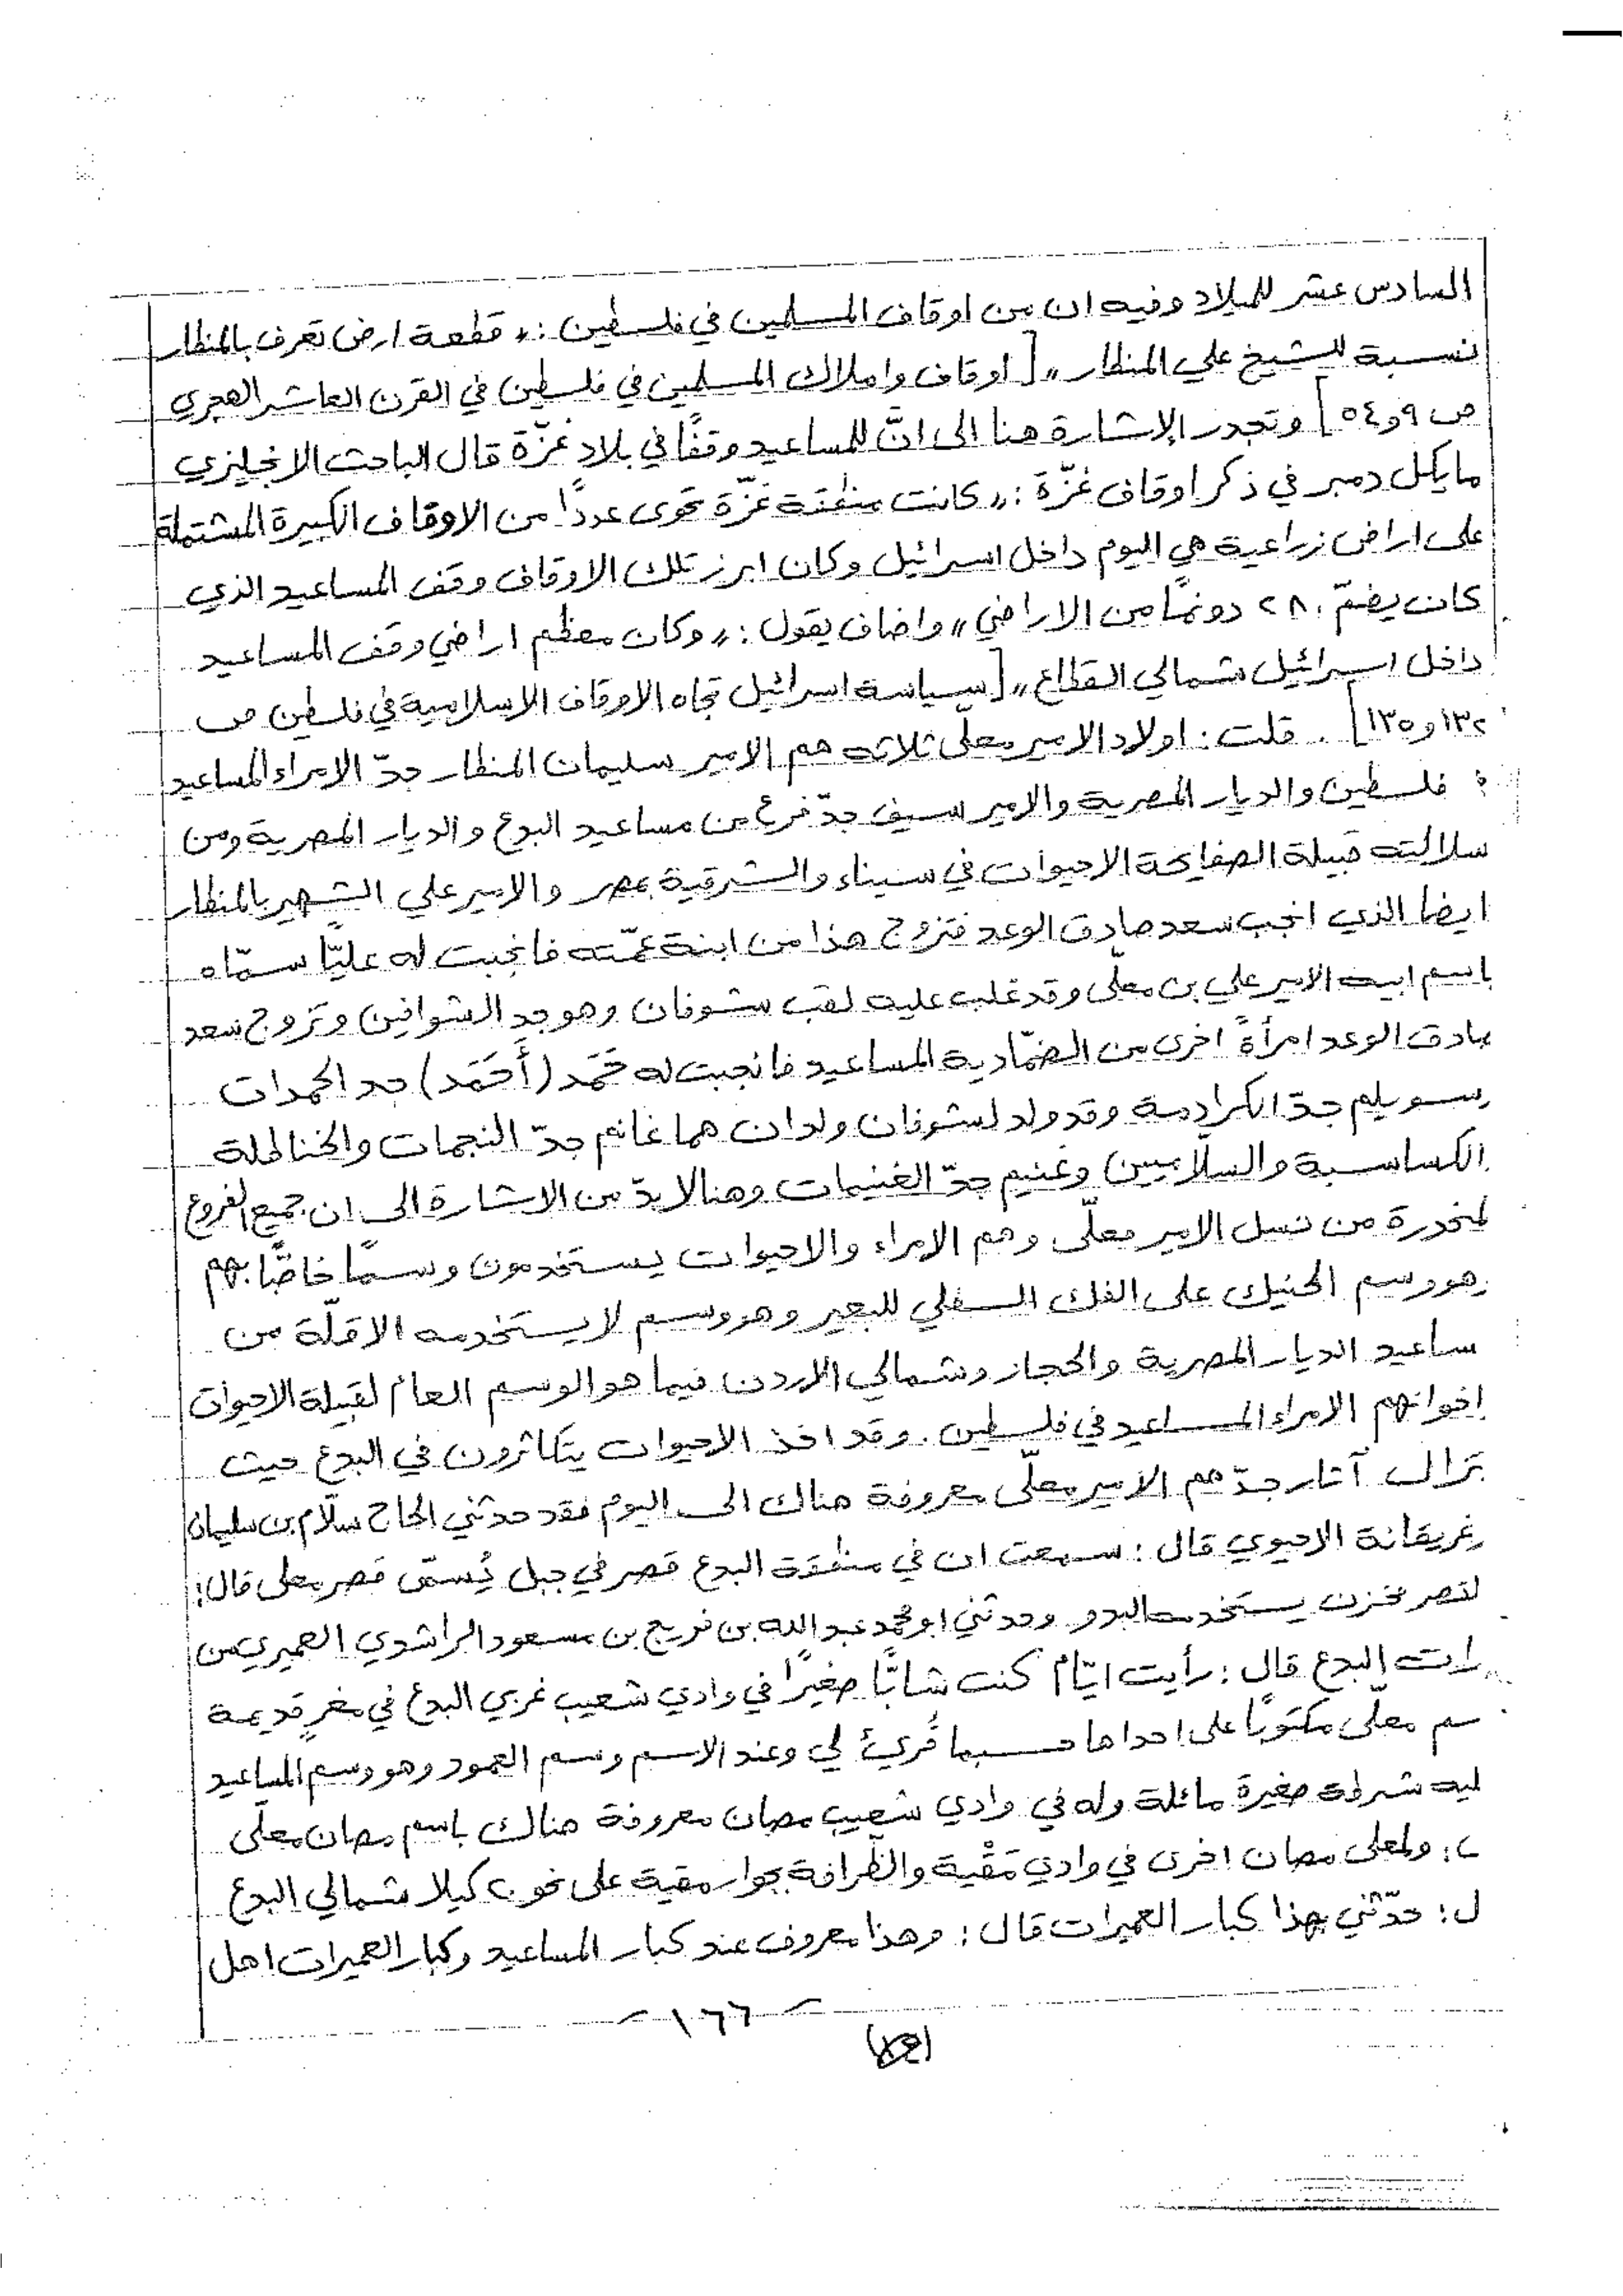 السادس عشر للميلاد وفيه ان من اوقاف المسلمين في فلسطين : « قطعة ارض تعرف بالمنطار
نسبة للشيخ علي المنطار » [ اوقاف واملاك المسلمين في فلسطين في القرن العاشر الهجري
ص ٩ و ٥٤ ] وتجدر الإشارة هنا الى انّ للمساعيد وقفًا في بلاد غزّة قال الباحث الانجليزي
مايكل دمبر في ذكر اوقاف غزّة : « كانت منطقة غزّة تحوى عددًا من الاوقاف الكبيرة المشتملة
على اراض زراعية هي اليوم داخل اسرائيل وكان ابرز تلك الاوقاف وقف المساعيد الذي
كان يضمّ ٢٨٠ دونمًا من الاراضي » واضاف يقول : « وكان معظم اراضي وقف المساعيد
داخل اسرائيل شمالي القطاع » [ سياسة اسرائيل تجاه الاوقاف الاسلامية في فلسطين ص
١٣٢ و ١٣٥ ] . قلت : اولاد الامير معلى ثلاثة هم الامير سليمان المنطار جدّ الامراء المساعيد
فلسطين والديار المصرية والامير سيف جدّ فرع من مساعيد البدع والديار المصرية ومن
سلالته قبيلة الصفايحة الاحيوات في سيناء والشرقية بمصر والامير علي الشهير بالمنطار
ايضا الذي انجب سعد صادق الوعد فتزوج هذا من ابنة عمّته فانجبت له عليًّا سمّاه
باسم ابيه الامير علي بن معلّى وقد غلب عليه لقب شوفان وهو جد الشوافين وتزوج سعد
صادق الوعد امرأةً اخرى من الضمّادية المساعيد فانجبت له حَمَد (أَحَمَد) جد الحمدات
وسويلم جدّ الكرادمة وقد ولد لشوفان ولدان هما غانم جدّ النجمات والخناطلة
الكساسبة والسلاميين وغنيم جدّ الغنيمات وهنا لا بدّ من الاشارة الى ان جميع الفروع
لمنحدرة من نسل الامير معلّى وهم الامراء والاحيوات يستخدمون وسمًا خاصًّا بهم
هو وسم الحنيك على الفك السفلي للبعير وهو وسم لا يستخدمه الا قلّة من
ساعيد الديار المصرية والحجاز وشمالي الاردن فيما هو الوسم العام لقبيلة الاحيوات
إخوانهم الامراء المساعيد في فلسطين . وقد اخذ الاحيوات يتكاثرون في البدع حيث
تزال آثار جدّهم الامير معلّى معروفة هناك الى اليوم فقد حدثني الحاج سلّام بن سليمان
غريقانة الاحيوي قال : سمعت ان في منطقة البدع قصر في جبل يُسمّى قصر معلى قال :
لقصر مخزن يستخدمه البدو وحدثني ابو محمد عبد الله بن فريج بن مسعود الراشدي العميري من
رات البدع قال : رأيت ايّام كنت شابًّا صغيرًا في وادي شعيب غربي البدع في مغرٍ قديمة
سم معلّى مكتوبًا على احداها حسبما قُرئ لي وعند الاسم وسم العمود وهو وسم المساعيد
ليه شرطة صغيرة مائلة وله في وادي شعيب مصان معروفة هناك باسم مصان معلى
: ولمعلى مصان اخرى في وادي مَقْية والظرافة بجوار مقية على نحو ٢٠ كيلا شمالي البدع
ل : حدّثني بهذا كبار العميرات قال : وهذا معروف عند كبار المساعيد وكبار العميرات اهل
١٦٦